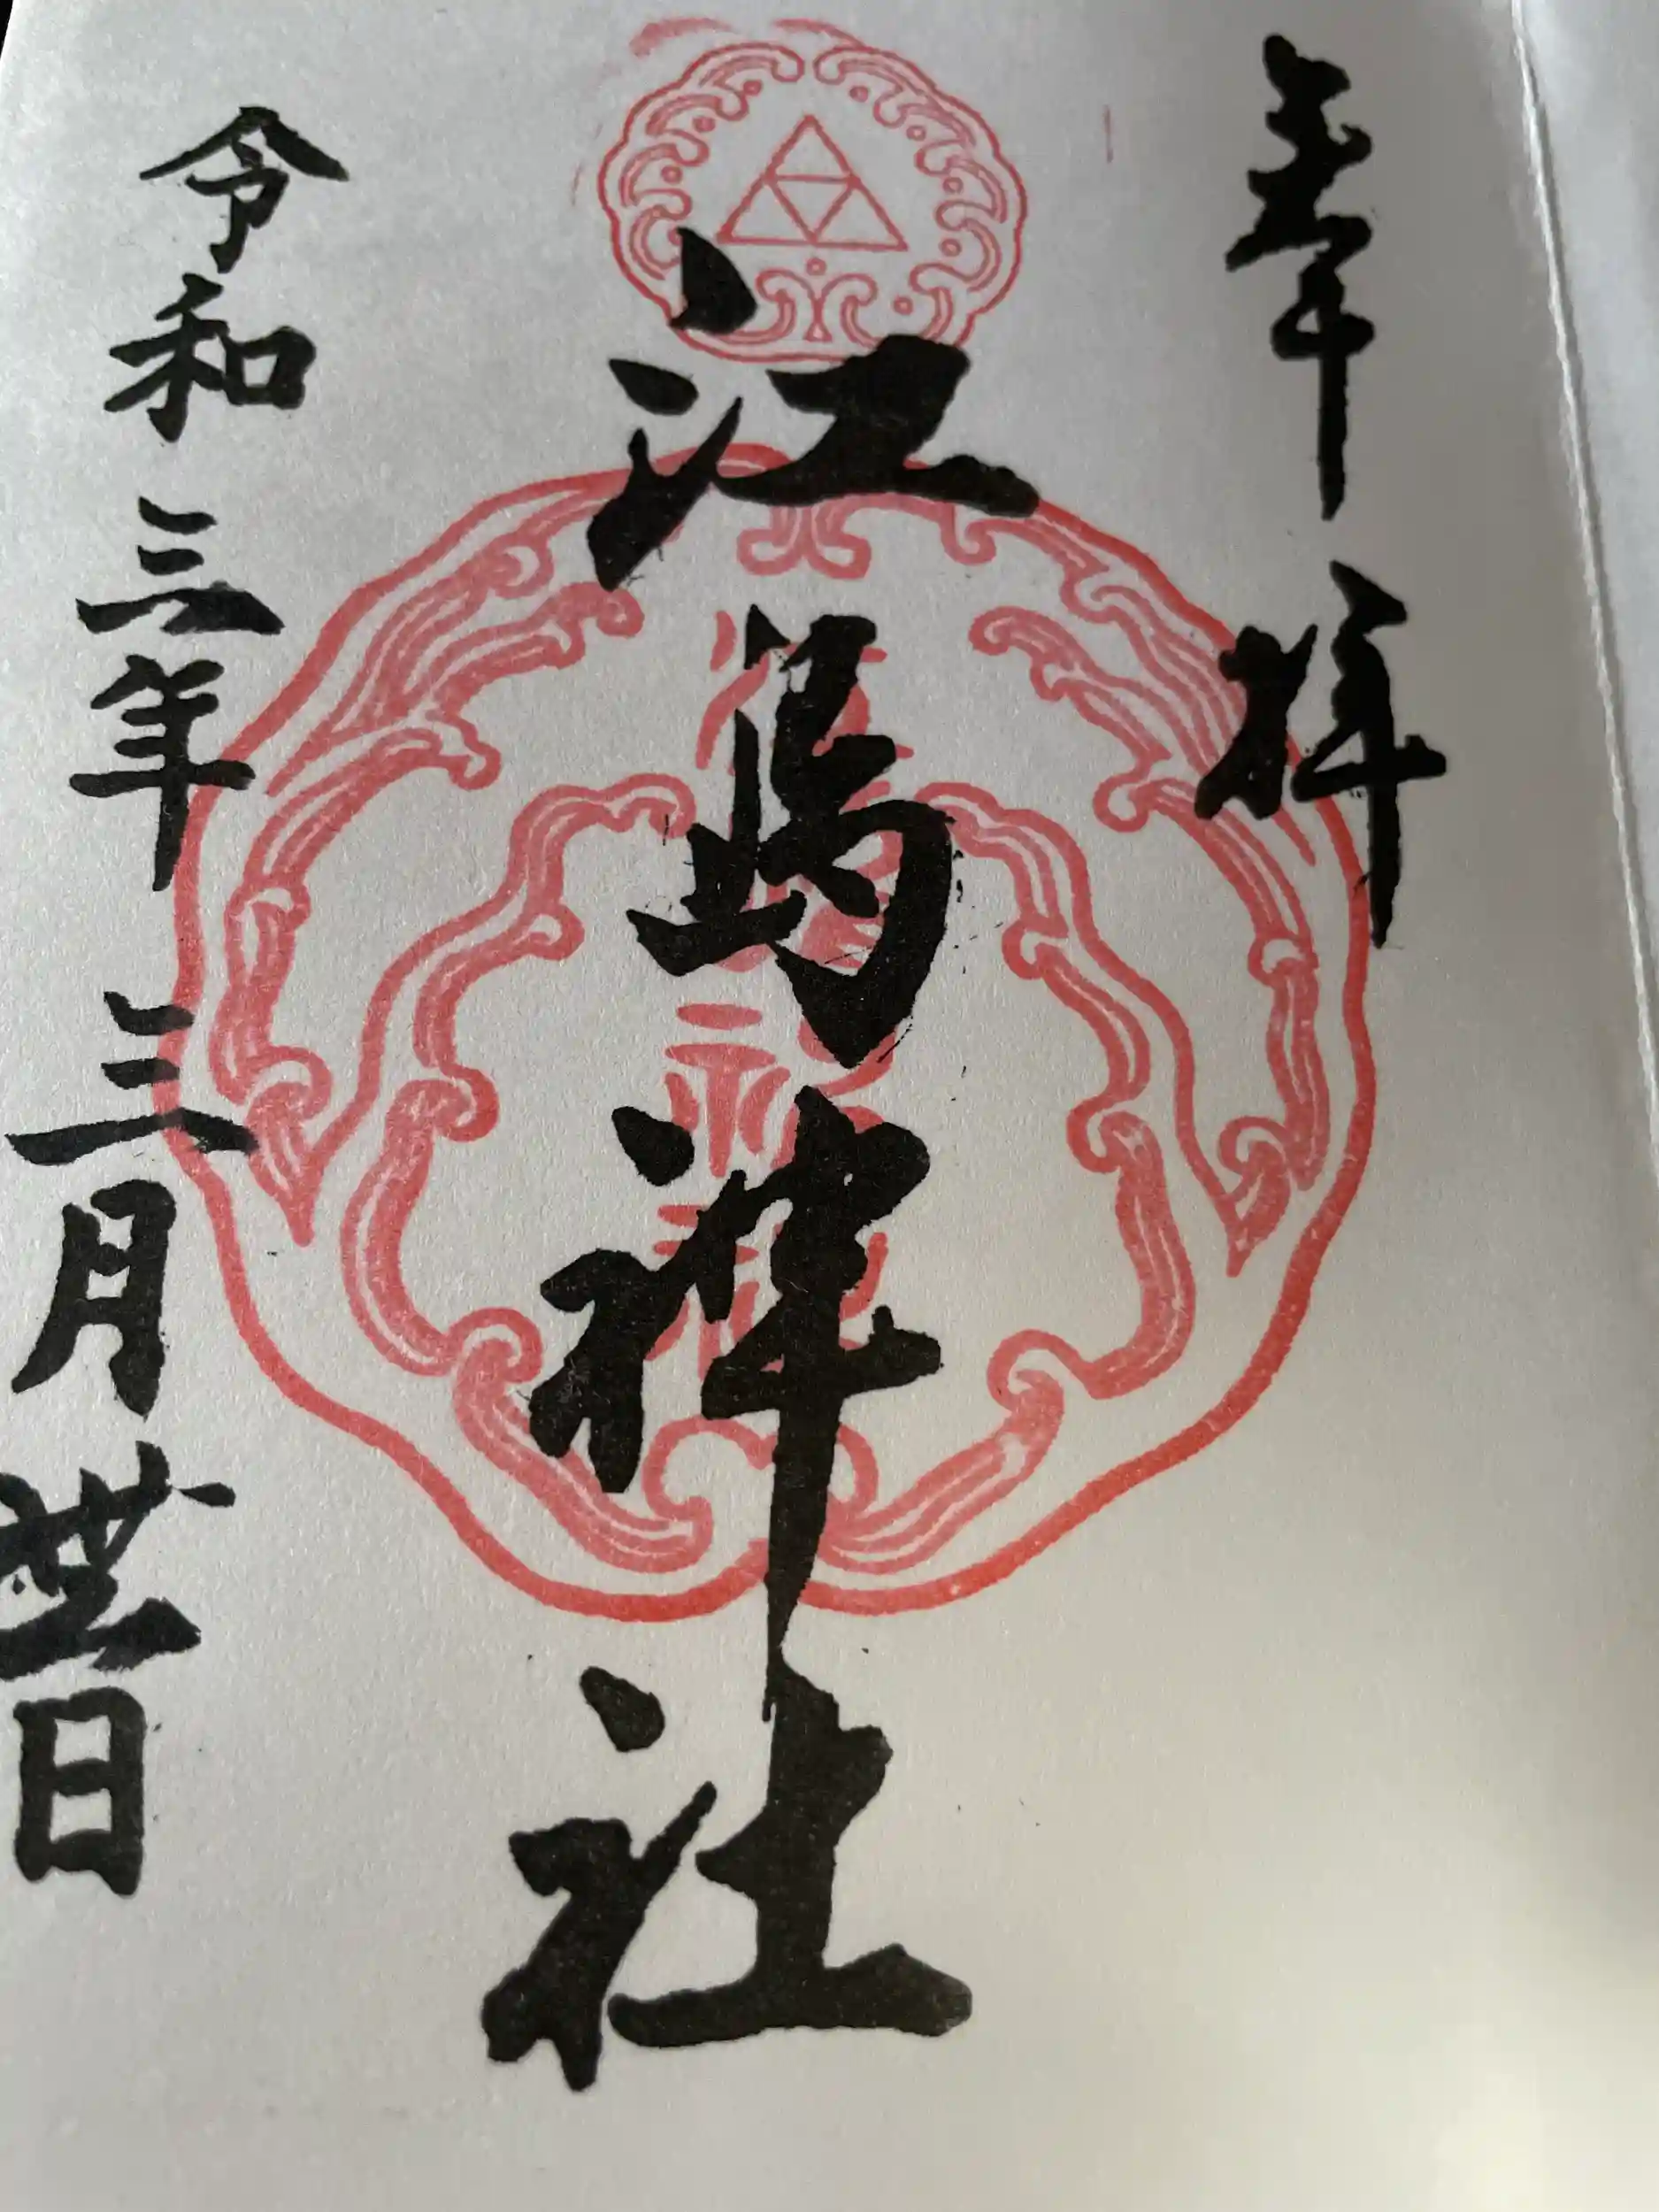 奉拝
江島神社
令和三年三月廿一日